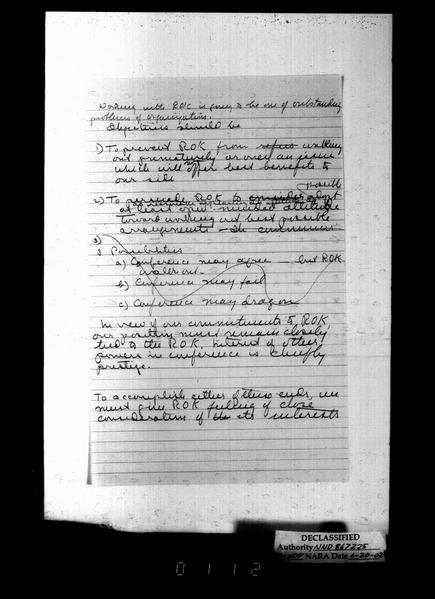 Working with ROK is going to be one of outstanding
problems of organization.
Objectives should be
1) To prevent ROK from walking
out prematurely or over an issue
which will offer best benefits to
our side
possible
2) To persuade ROK to consider adopt
at least open minded attitude
toward working out best possible
arrangements - the communist
3)
3 Possibilities
a) Conference may agree - but ROK
walk out
b) Conference may fail
c) Conference may drag on
In view of our commitments to ROK,
our position must remain closely
tied to the ROK, interest of other
powers in conference is chiefly
prestige.
To accomplish either of these ends, we
must give ROK feeling of close
consideration of the its interests
DECLASSIFIED
Authority NND 867225
NARA Date 6-20-02
01112